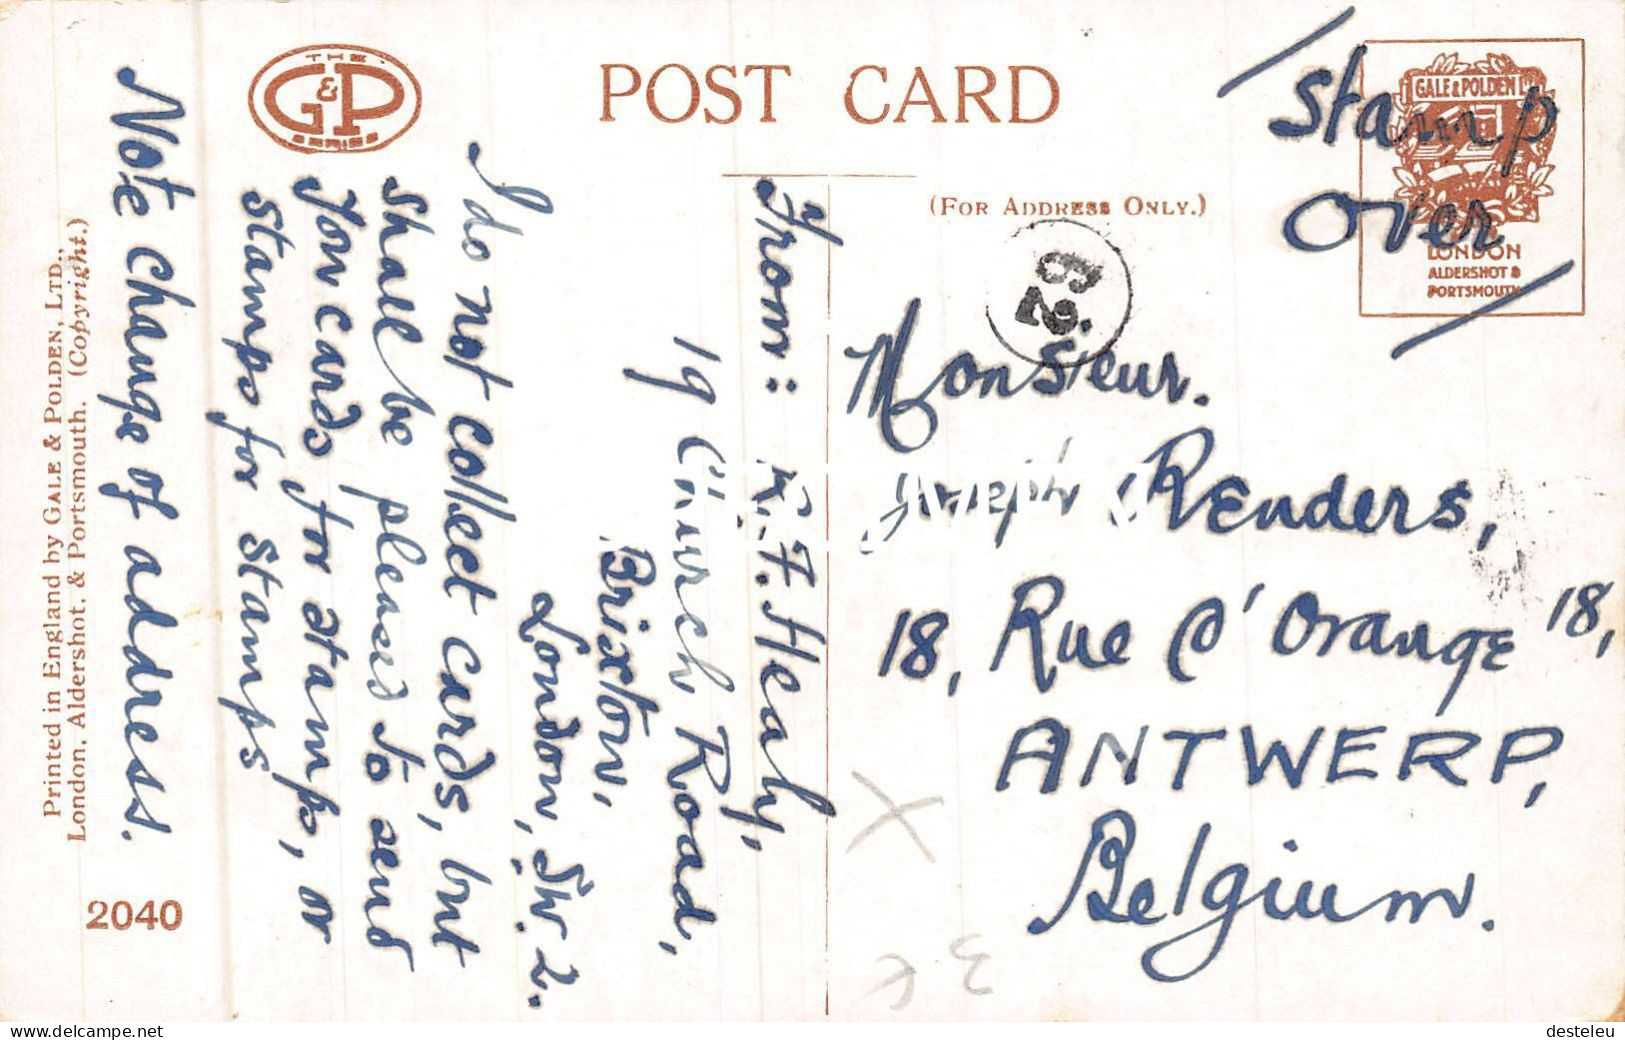 THE
G&P
SERIES
POST CARD
(FOR ADDRESS ONLY.)
GALE & POLDEN LTD
LONDON
ALDERSHOT &
PORTSMOUTH
Stamp
over
29
Monsieur.
Joseph Renders,
18, Rue d'Orange 18,
ANTWERP,
Belgium.
From: K.F. Healy,
19 Church Road,
Brixton,
London, SW.2.
I do not collect cards, but
shall be pleased to send
you cards for stamps, or
stamps for stamps
Note change of address.
Printed in England by GALE & POLDEN, LTD.,
London, Aldershot, & Portsmouth. (Copyright.)
2040
3€
delcampe.net
desteleu